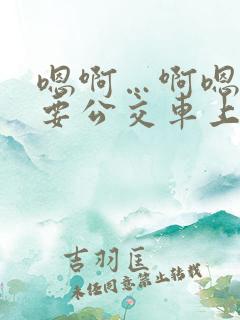 嗯啊…啊嗯
要公交车上
吉羽匡
未经同意禁止转载